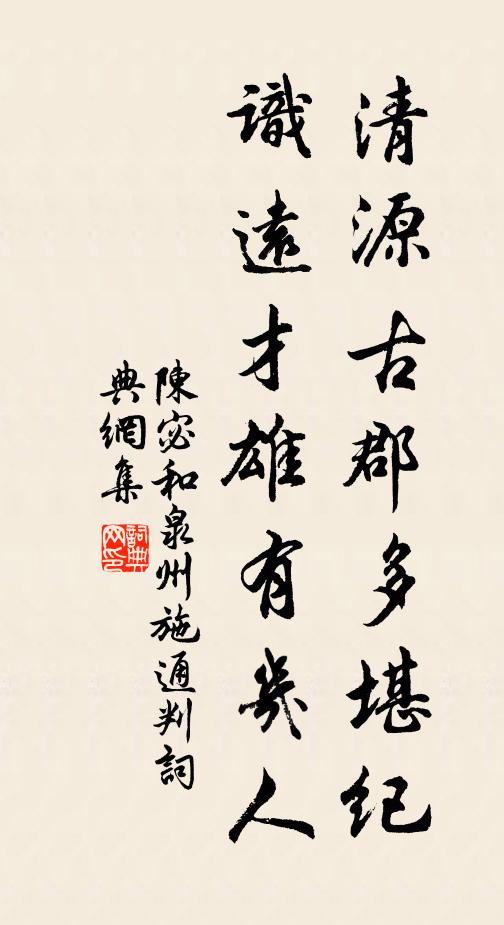 清源古郡多堪纪
識遠才雄有幾人
陳宓和泉州施通判詞
典網集
詞典网印